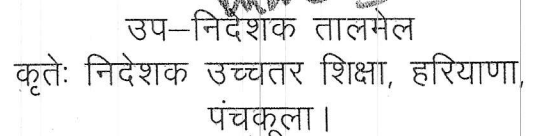 उप–निदेशक तालमेल
कृतेः निदेशक उच्चतर शिक्षा, हरियाणा,
पंचकूला।